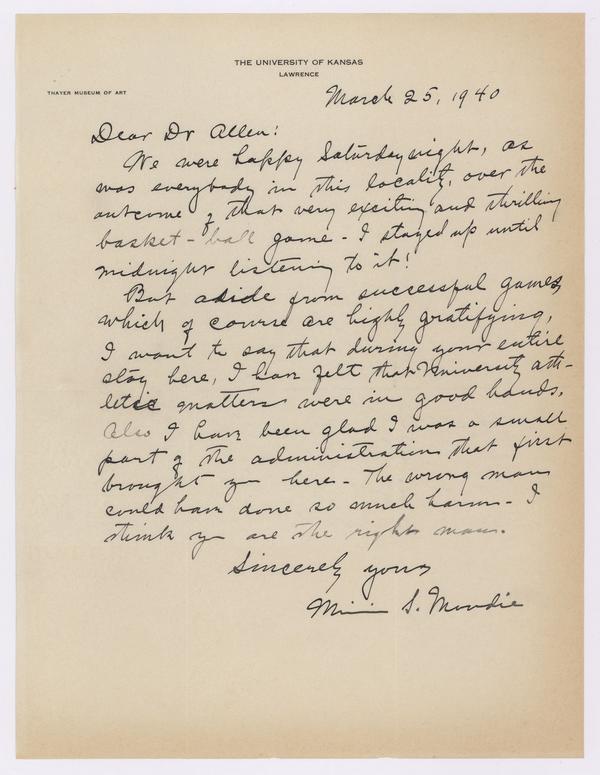 THE UNIVERSITY OF KANSAS
LAWRENCE
THAYER MUSEUM OF ART
March 25, 1940
Dear Dr Allen:
We were happy Saturday night, as
was everybody in this locality, over the
outcome of that very exciting and thrilling
basket-ball game - I stayed up until
midnight listening to it!
But aside from successful games,
which of course are highly gratifying,
I want to say that during your entire
stay here, I have felt that University ath-
letic matters were in good hands.
Also I have been glad I was a small
part of the administration that first
brought you here - The wrong man
could have done so much harm - I
think you are the right man.
Sincerely yours
Minnie S. Moodie